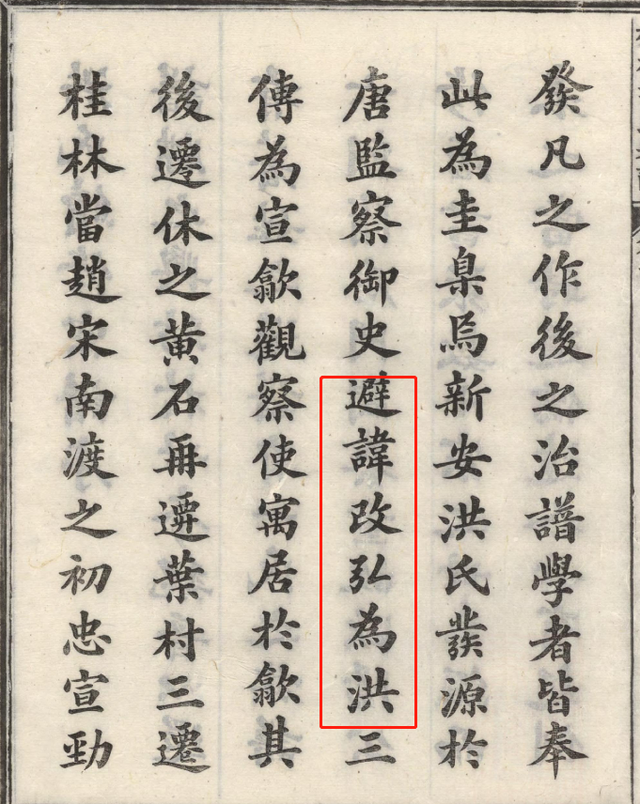 發凡之作後之治譜學者皆奉
此為圭臬焉新安洪氏發源於
唐監察御史避諱改弘為洪三
傳為宣歙觀察使寓居於歙其
後遷休之黄石再遷葉村三遷
桂林當趙宋南渡之初忠宣勁